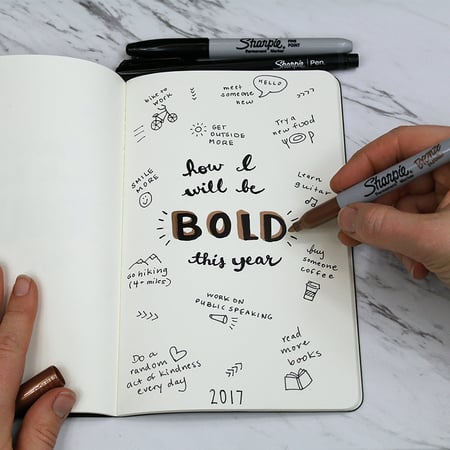 Sharpie FINE POINT
Permanent Marker
Sharpie Pen.
HELLO
meet
someone
new
bike to
work
GET
OUTSIDE
MORE
Try a
new food
how I
will be
BOLD
this year
SMILE
MORE
Learn
guitar
Sharpie Bronze
GO HIKING
(4+ miles)
buy
someone
coffee
WORK ON
PUBLIC SPEAKING
Do a
random
act of kindness
every day
read
more
books
2017